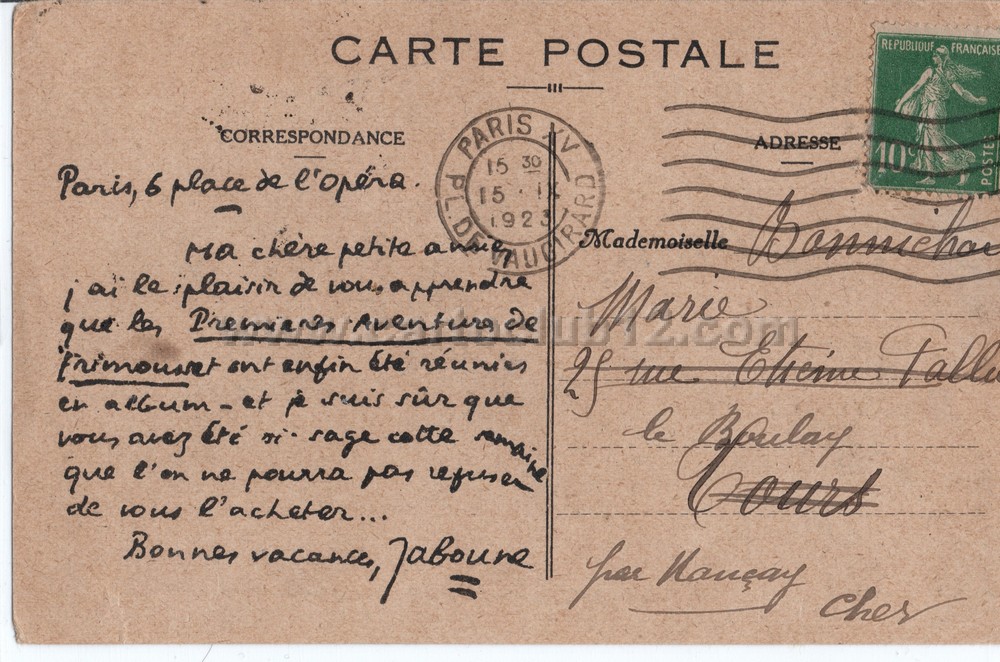 CARTE POSTALE
CORRESPONDANCE
Paris, 6 place de l'opéra.
Ma chère petite amie,
j'ai le plaisir de vous apprendre
que les Premières Aventure de
Frimousset ont enfin été réunies
en album - et je suis sûr que
vous avez été si sage cette semaine
que l'on ne pourra pas refuser
de vous l'acheter...
Bonnes vacances, Jaboune
PARIS XV
15 30
15 · IX
1923
PL. DE VAUGIRARD
REPUBLIQUE FRANÇAISE
10c
POSTES
ADRESSE
Mademoiselle
Marie
25 rue Etienne Pallu
le Boulay
Tours
par Nançay
Cher